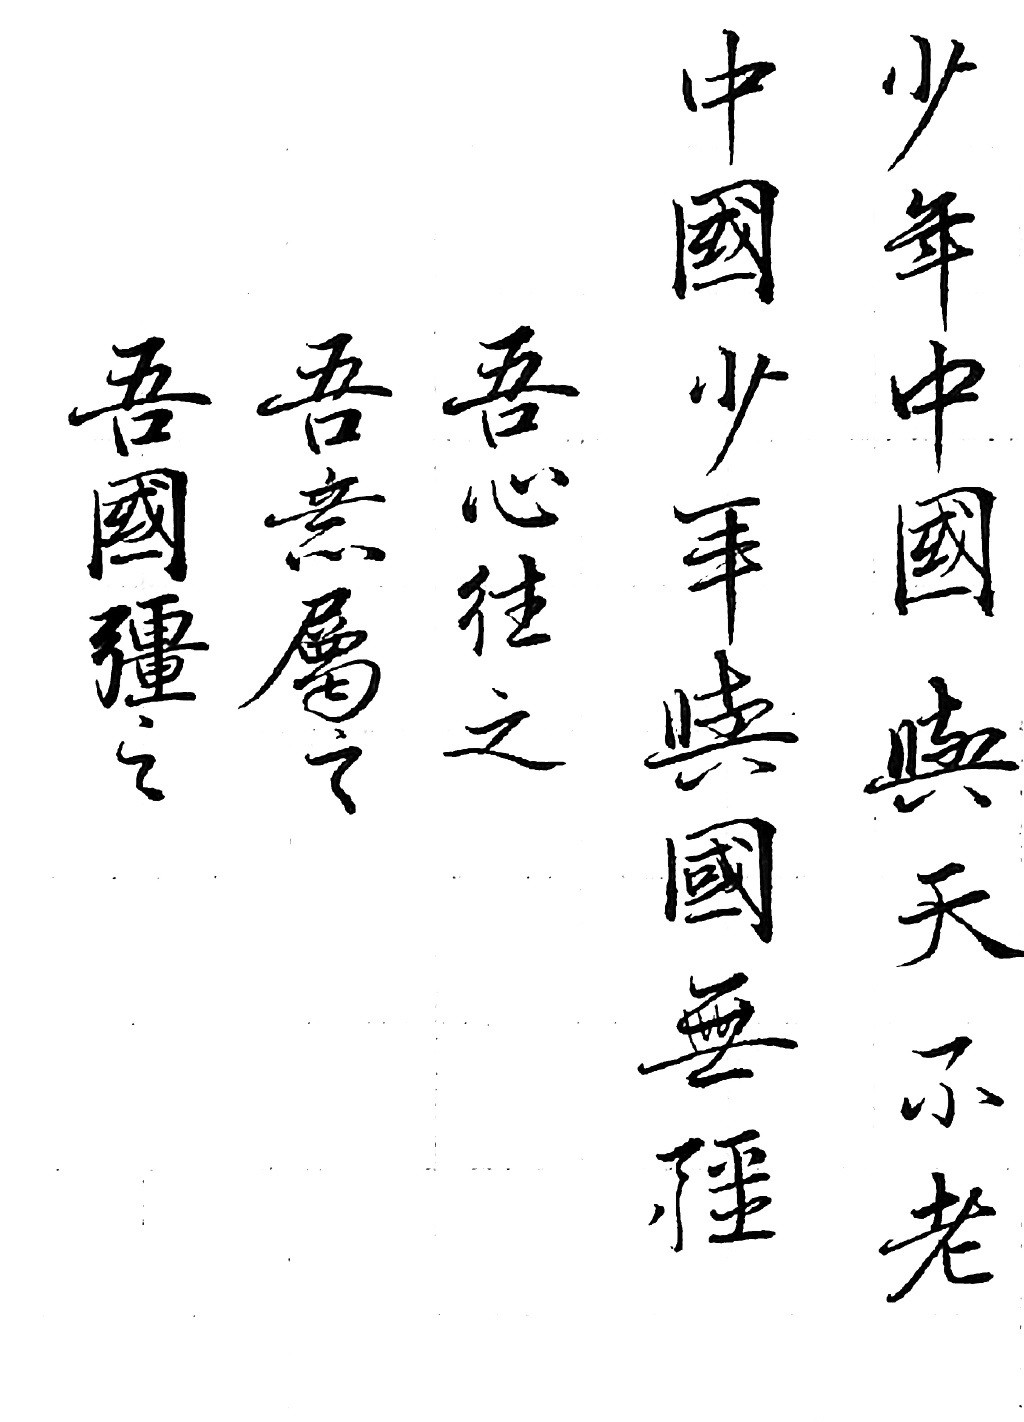 少年中國與天不老
中國少年與國無疆
吾心往之
吾意屬之
吾國疆之